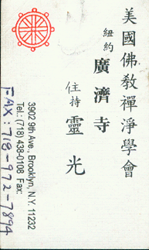 美國佛教禪淨學會
紐約 廣濟寺
住持 靈光
3902 9th Ave., Brooklyn, N.Y. 11232
Tel: (718) 438-0108 Fax:
FAX: 718-972-7894